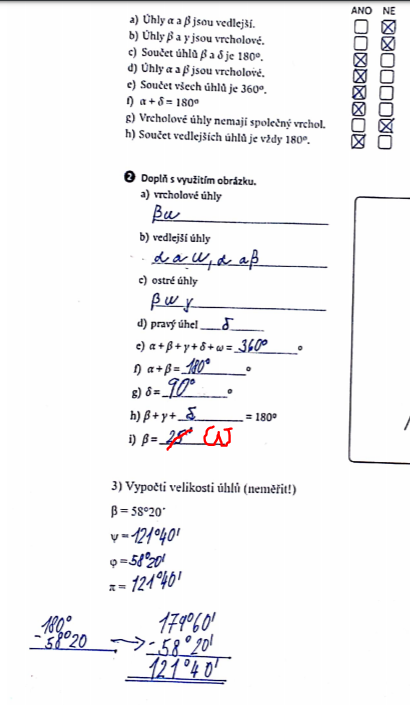 ANO NE
a) Úhly α a β jsou vedlejší.
b) Úhly β a γ jsou vrcholové.
c) Součet úhlů β a δ je 180°.
d) Úhly α a β jsou vrcholové.
e) Součet všech úhlů je 360°.
f) α + δ = 180°
g) Vrcholové úhly nemají společný vrchol.
h) Součet vedlejších úhlů je vždy 180°.
2 Doplň s využitím obrázku.
a) vrcholové úhly
β ω
b) vedlejší úhly
α a ω, α a β
c) ostré úhly
β ω γ
d) pravý úhel δ
e) α + β + γ + δ + ω = 360° °
f) α + β = 180° °
g) δ = 90° °
h) β + γ + δ = 180°
i) β = ω
3) Vypočti velikosti úhlů (neměřit!)
β = 58°20'
ψ = 121°40'
φ = 58°20'
π = 121°40'
180° 179°60'
-58°20 → -58°20'
121°40'